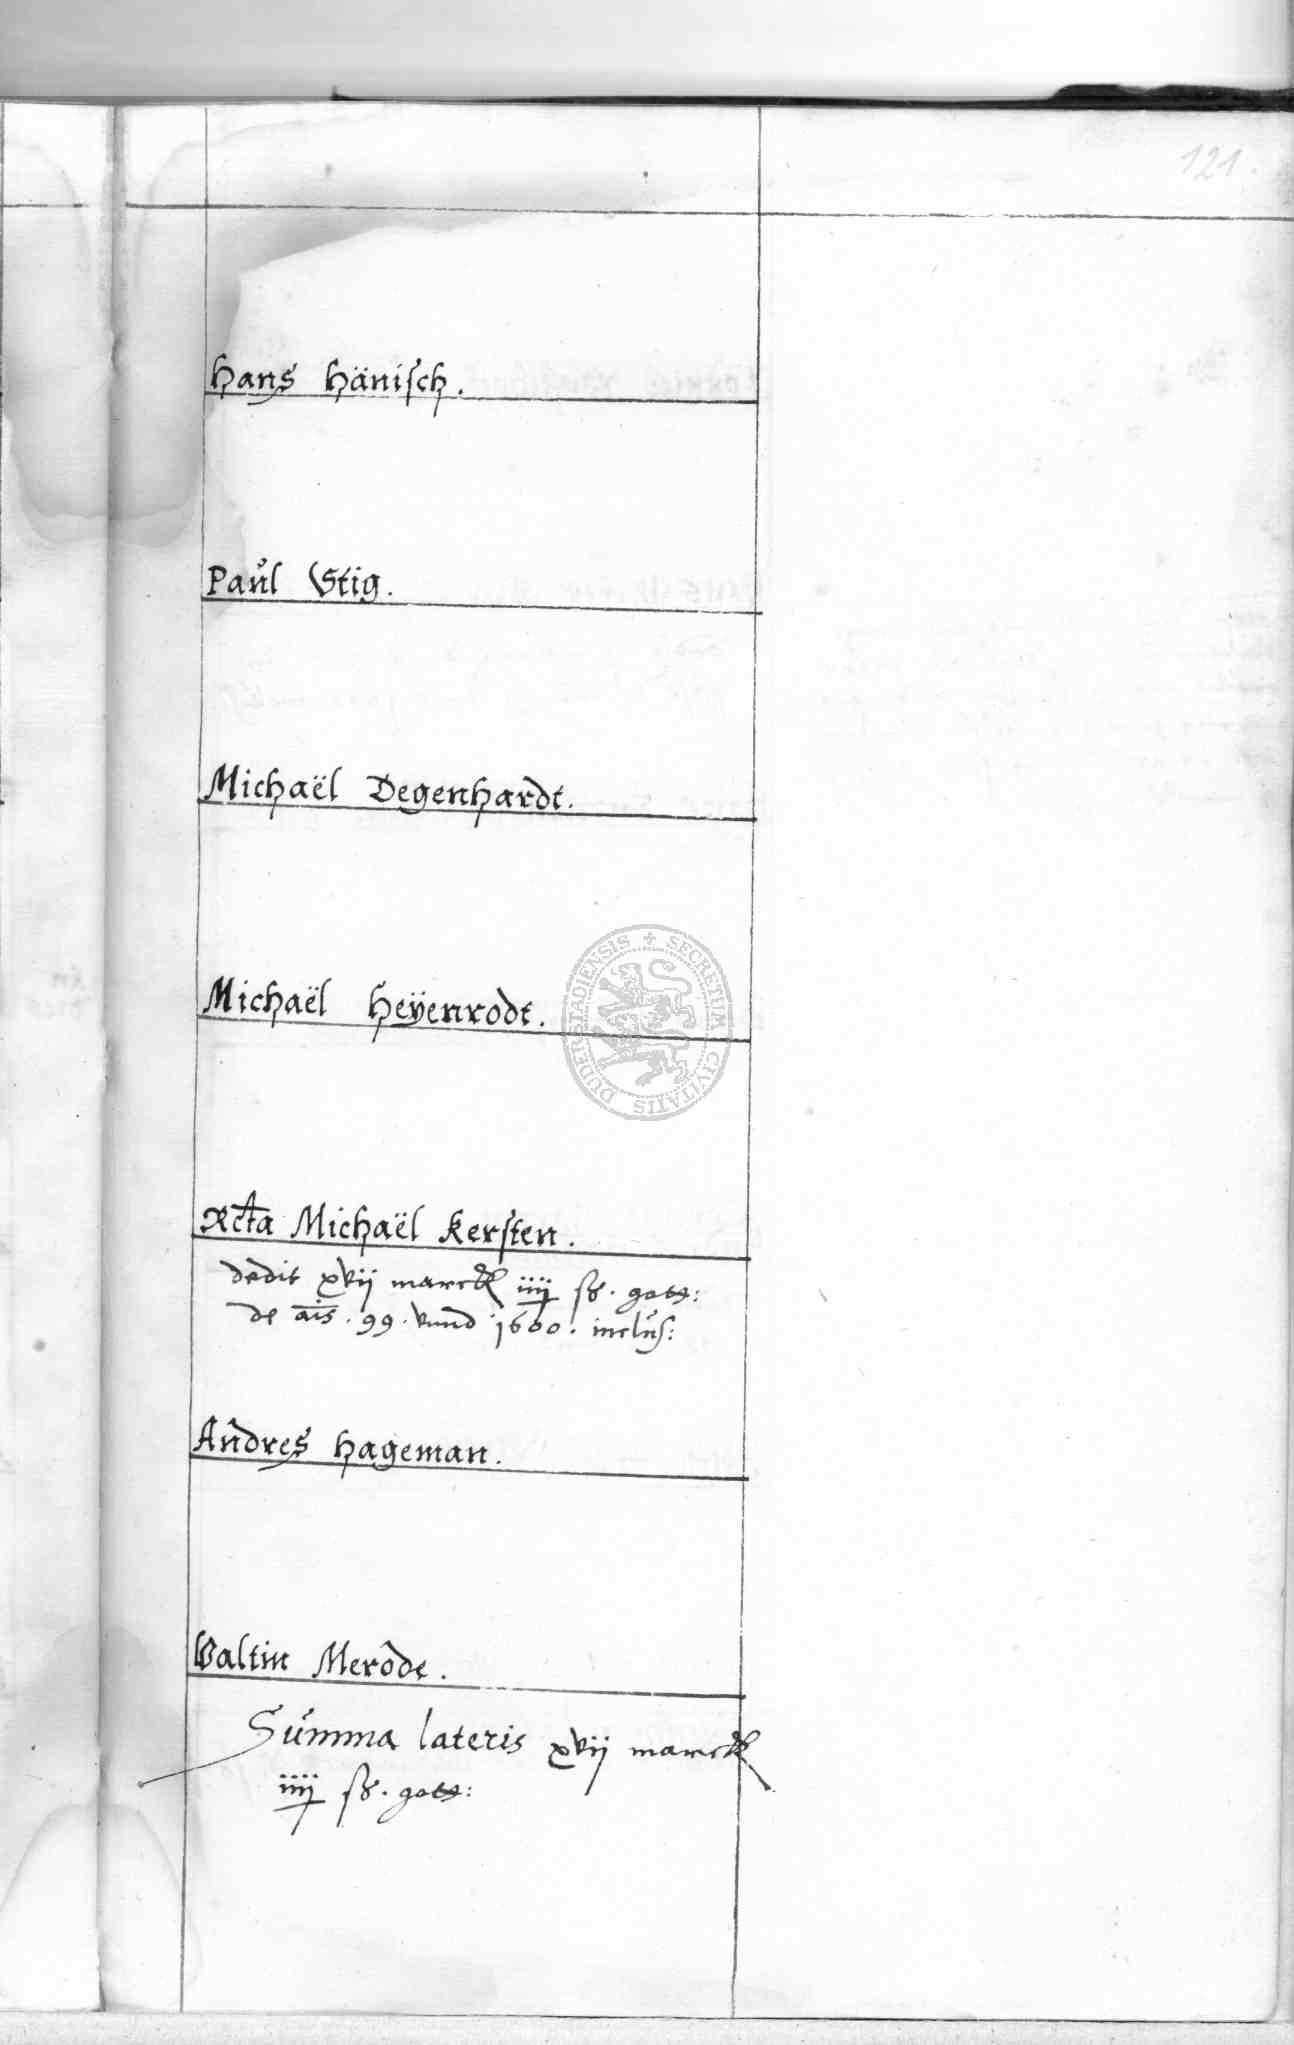 121.
Hans Hänisch.
Paul Stig.
Michaël Degenhardt.
Michaël Heÿenrodt.
Michaël Kersten.
dedit xvij marck iiij ß. gott:
de ais. 99. vnnd 1600. inclus:
Andres Hageman.
Valtin Merode.
Summa lateris xvij marck
iiij ß. gott:
SECRETUM CIVITATIS DUDERSTADIENSIS